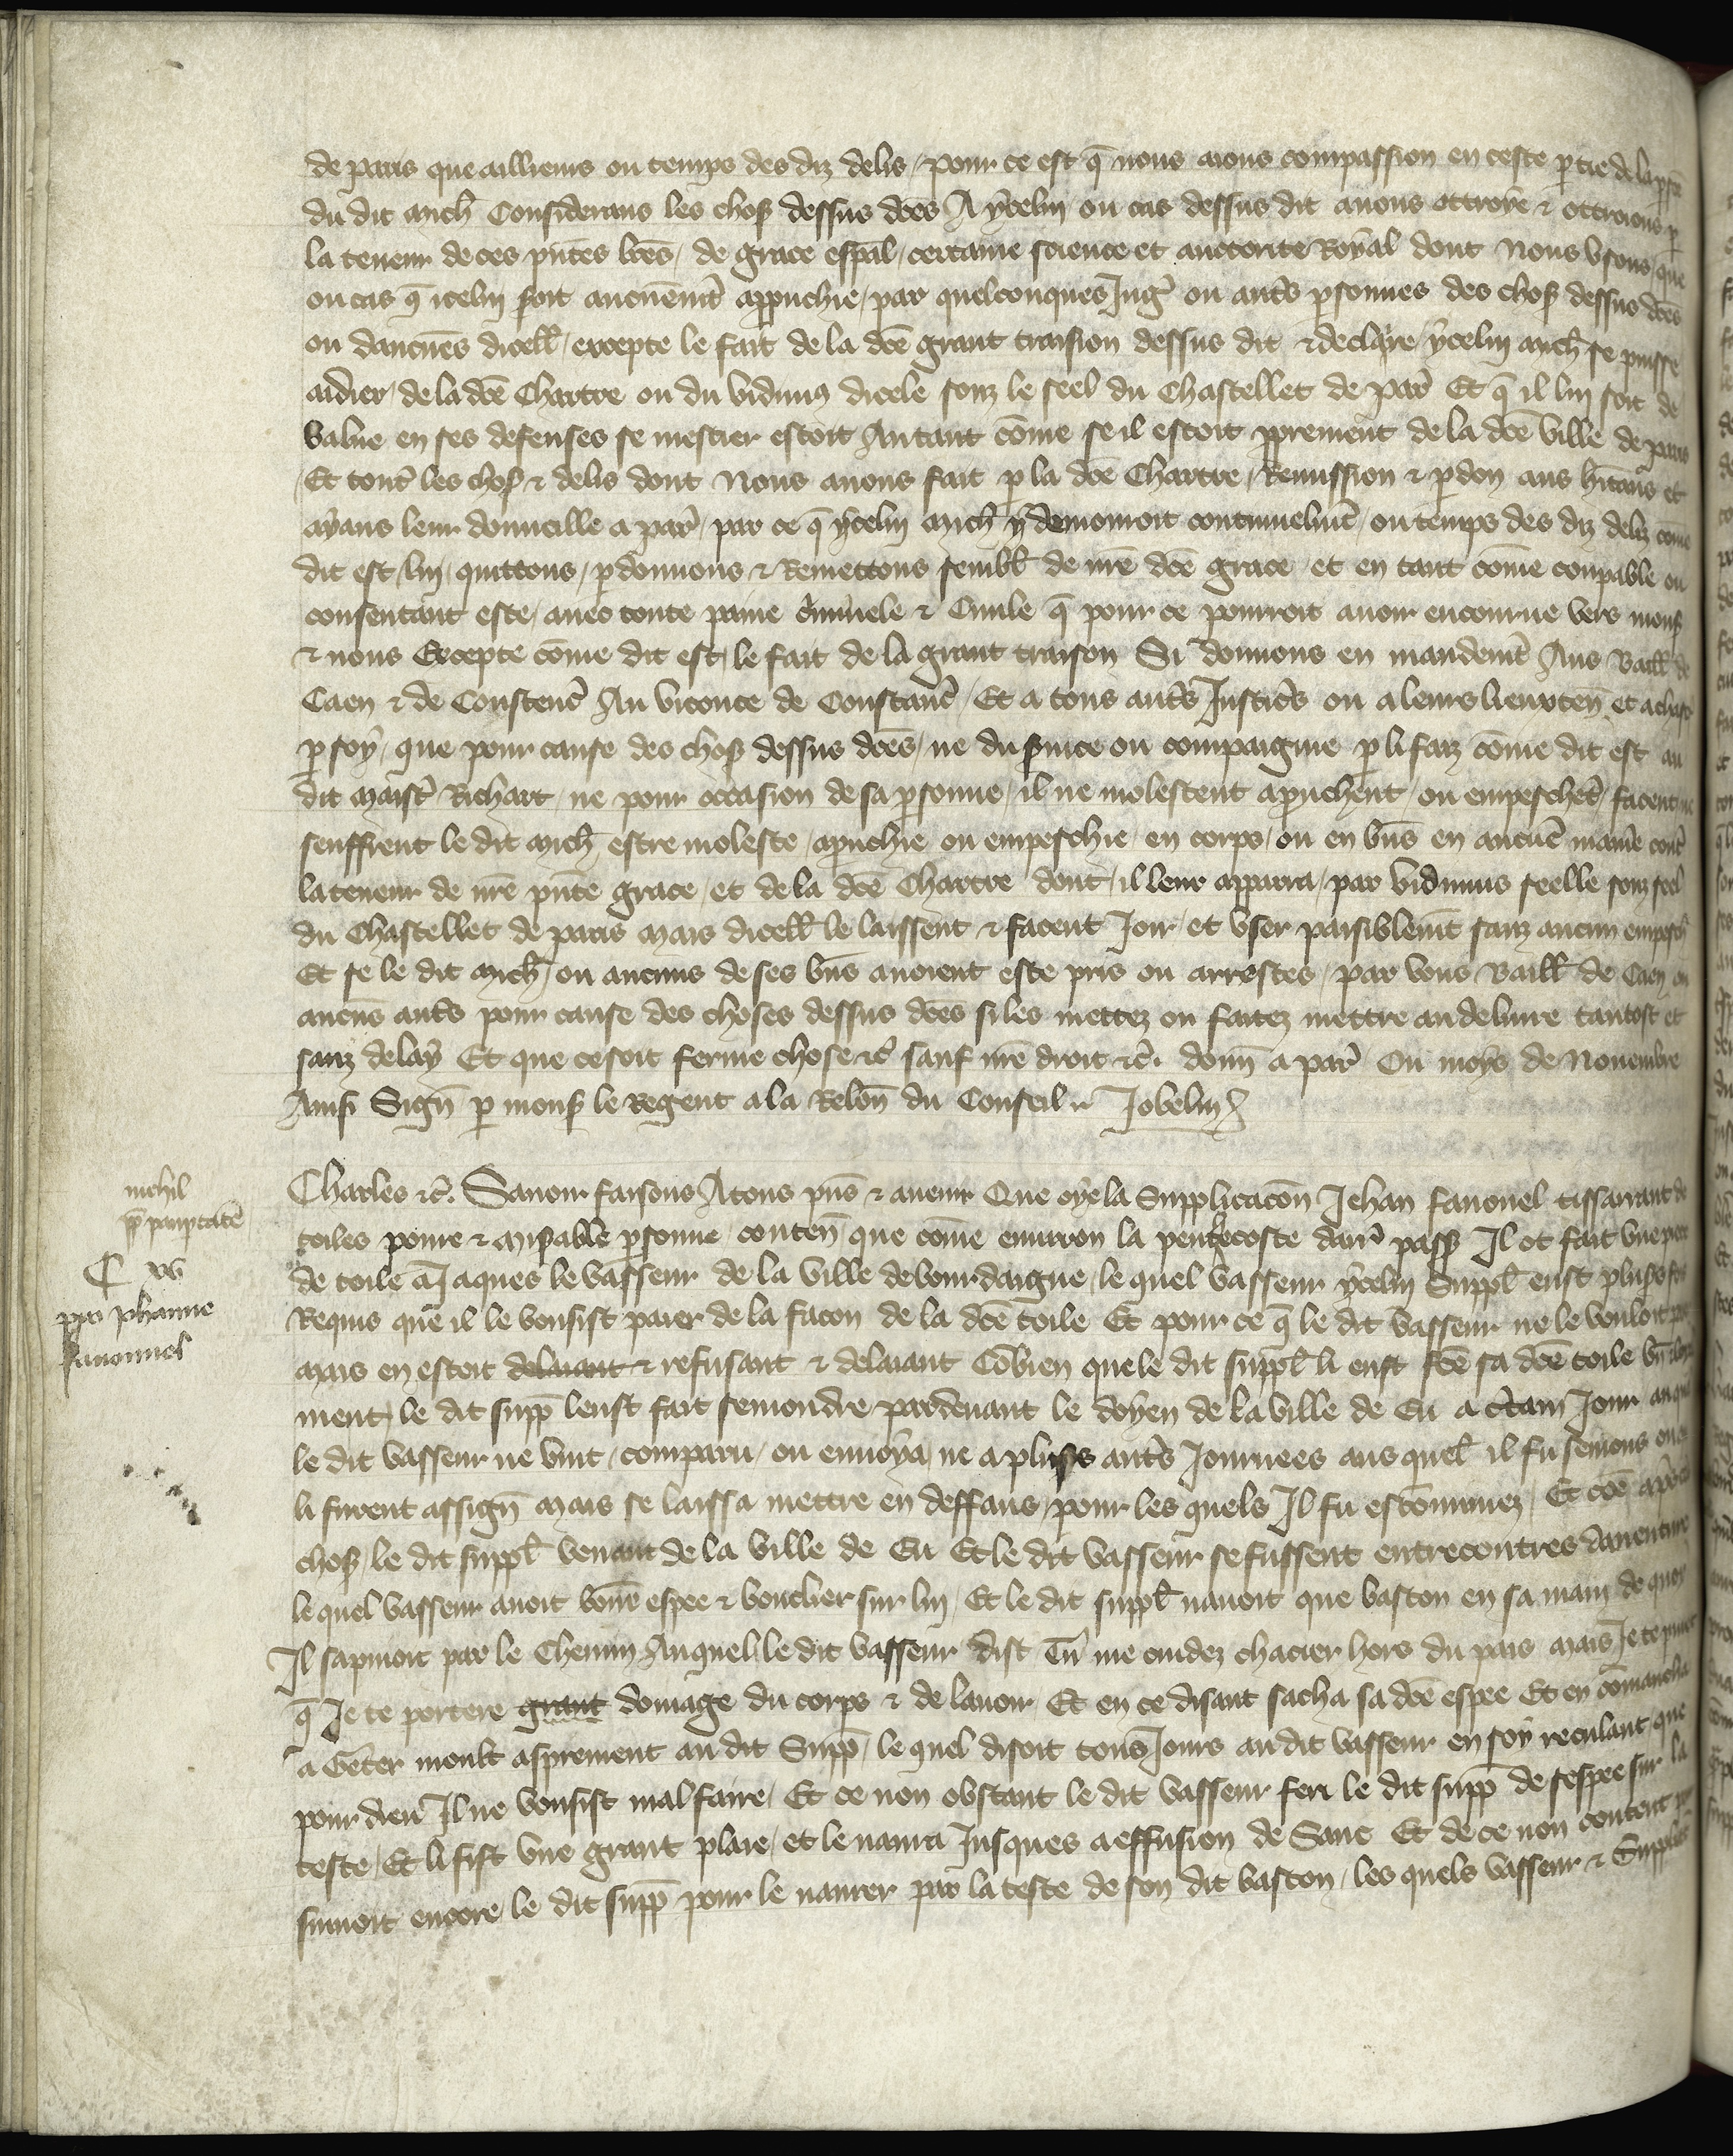 de paris que aillieurs ou temps des diz delis / pour ce est q̄ nous aions compassion en ceste ꝑtie de la
du dit Mich̄ Considerans les chos̄ dessus dc̄es A ycelui ou cas dessus dit auons ottroye & ottroions ꝑ
la teneur de ces pn̄tes lr̄es / de grace esp̄al / certaine science et auctorite Royal dont Nous Vsons / que
ou cas q̄ icelui soit aucunem̄t appuchie / par quelconques Juḡ ou aut̄s ꝑsonnes des chos̄ dessus dc̄es
ou daucūes dicell̄ / excepte le fait de la dc̄e grant traison dessus dit & declaire / ycelui Mich̄ se puisse
aidier / de la dc̄e Chartre ou du vidimus dicele souz le seel du Chastellet de par̄ Et q̄ il lui soit de
value en ses defenses se mestier estoit Autant cōme se il estoit ꝓprement de la dc̄e ville de paris
Et tout̄ les chos̄ & delis dont Nous auons fait ꝑ la dc̄e Chartre / Remission & ꝑdon aus hītans et
ayans leur domicille a par̄ / par ce q̄ ycelui Mich̄ y demouroit continuelm̄t / ou temps des diz deliz cōme
dit est / lui / quittons / ꝑdonnons & Remettons sembl̄ de nr̄e dc̄e grace et en tant cōme coupable ou
consentant este / auec toute paine c̄minele & Ciuile q̄ pour ce pourroit auoir encourue vers mons̄
& nous Excepte cōme dit est / le fait de la grant traison Si donnons en mandem̄t Aus Baill̄ de
Caen & de Constenc̄ Au viconte de Constanc̄ / Et a tous aut̄s Justic̄s ou a leurs lieuxten̄ et a chūs
ꝑ soy / que pour cause des chos̄ dessus dc̄es / ne du s̄uice ou compaignie ꝑ li faiz cōme dit est au
dit Maist̄ Richart / ne pour occasion de sa ꝑsonne / il ne molestent apruchent / ou empeschēt / facent ne
seuffrent le dit Mich̄ estre moleste / apruchie ou empeschie / en corps / ou en biēs en aucūe manie cont̄
la teneur de nr̄e pn̄te grace / et de la dc̄e Chartre dont / il leur apparra / par vidimus seelle souz seel
du Chastellet de paris Mais dicell̄ le laissent & facent Joir / et vser paisiblem̄t sanz aucun empesch̄
Et se le dit Mich̄ / ou aucuns de ses biēs auoient este pris ou arrestes / par vous Baill̄ de Caen ou
aucūs aut̄s pour cause des choses dessus dc̄es si les mettez ou faitez mettre au deliure tantost et
sanz delay Et que ce soit ferme chose &c̄ sauf nr̄e droit &c̄. donn̄ a par̄ Ou moys de Nouembre
Ainsi Sign̄ ꝑ mons̄ le Regent a la Relōn du Conseil .. Jobelin
Charles &c̄. Sauoir faisons A tous pn̄s & auenir Que oye la Supplicacōn Jehan fanouel tissarrant de
toiles poure & mis̄able ꝑsonne / conten̄ que cōme enuiron la penthecoste dar̄r pass̄ Il ot fait vne piece
de toile a Jaques le vasseur de la ville de bourdaigne / le quel vasseur ycelui Suppl̄ eust plus̄s fois
Requis que il le vousist paier de la facon de la dc̄e toile Et pour ce q̄ le dit vasseur ne le vouloit
Mais en estoit delaiant & refusant & delaiant Cōbien que le dit suppl̄ li eust fc̄e sa dc̄e toile
ment / le dit supp̄ leust fait semondre pardeuant le doyen de la ville de Eu a c̄tain Jour auquel
le dit vasseur ne vint / comparu / ou enuoya / ne a plus̄s aut̄s Journees aus quel̄ il fu semons ou
li furent assign̄ Mais se laissa mettre en deffaus / pour les quels Il fu escōmuniez / Et cōe apres ces
chos̄ / le dit suppl̄ venant de la ville de Eu Et le dit vasseur se fussent entrecontres dauenture
le quel vasseur auoit bōne espee & bouclier sur lui / Et le dit suppl̄ nauoit que baston en sa main de quoy
Il sapuioit par le Chemin Auquel le dit vasseur dist Tu me cuidez chacier hors du pais Mais Je te
q̄ Je te portere grant domage du corps & de lauoir Et en ce disant sacha sa dc̄e espee Et en cōmancha
a Geter moult asprement au dit Supp̄ / le quel disoit tous Jours au dit vasseur en soy reculant que
pour dieu Il ne vousist mal faire / Et ce non obstant le dit vasseur feri le dit supp̄ de sespee sur la
teste / Et li fist vne grant plaie / et le naura Jusques a effusion de Sanc Et de ce non content
suiuoit encore le dit supp̄ pour le naurer par la teste de son dit baston / les quels vasseur &
nichil
ꝓp̄ pauꝑtatē
C xv
ꝓ Johanne
fanouuel